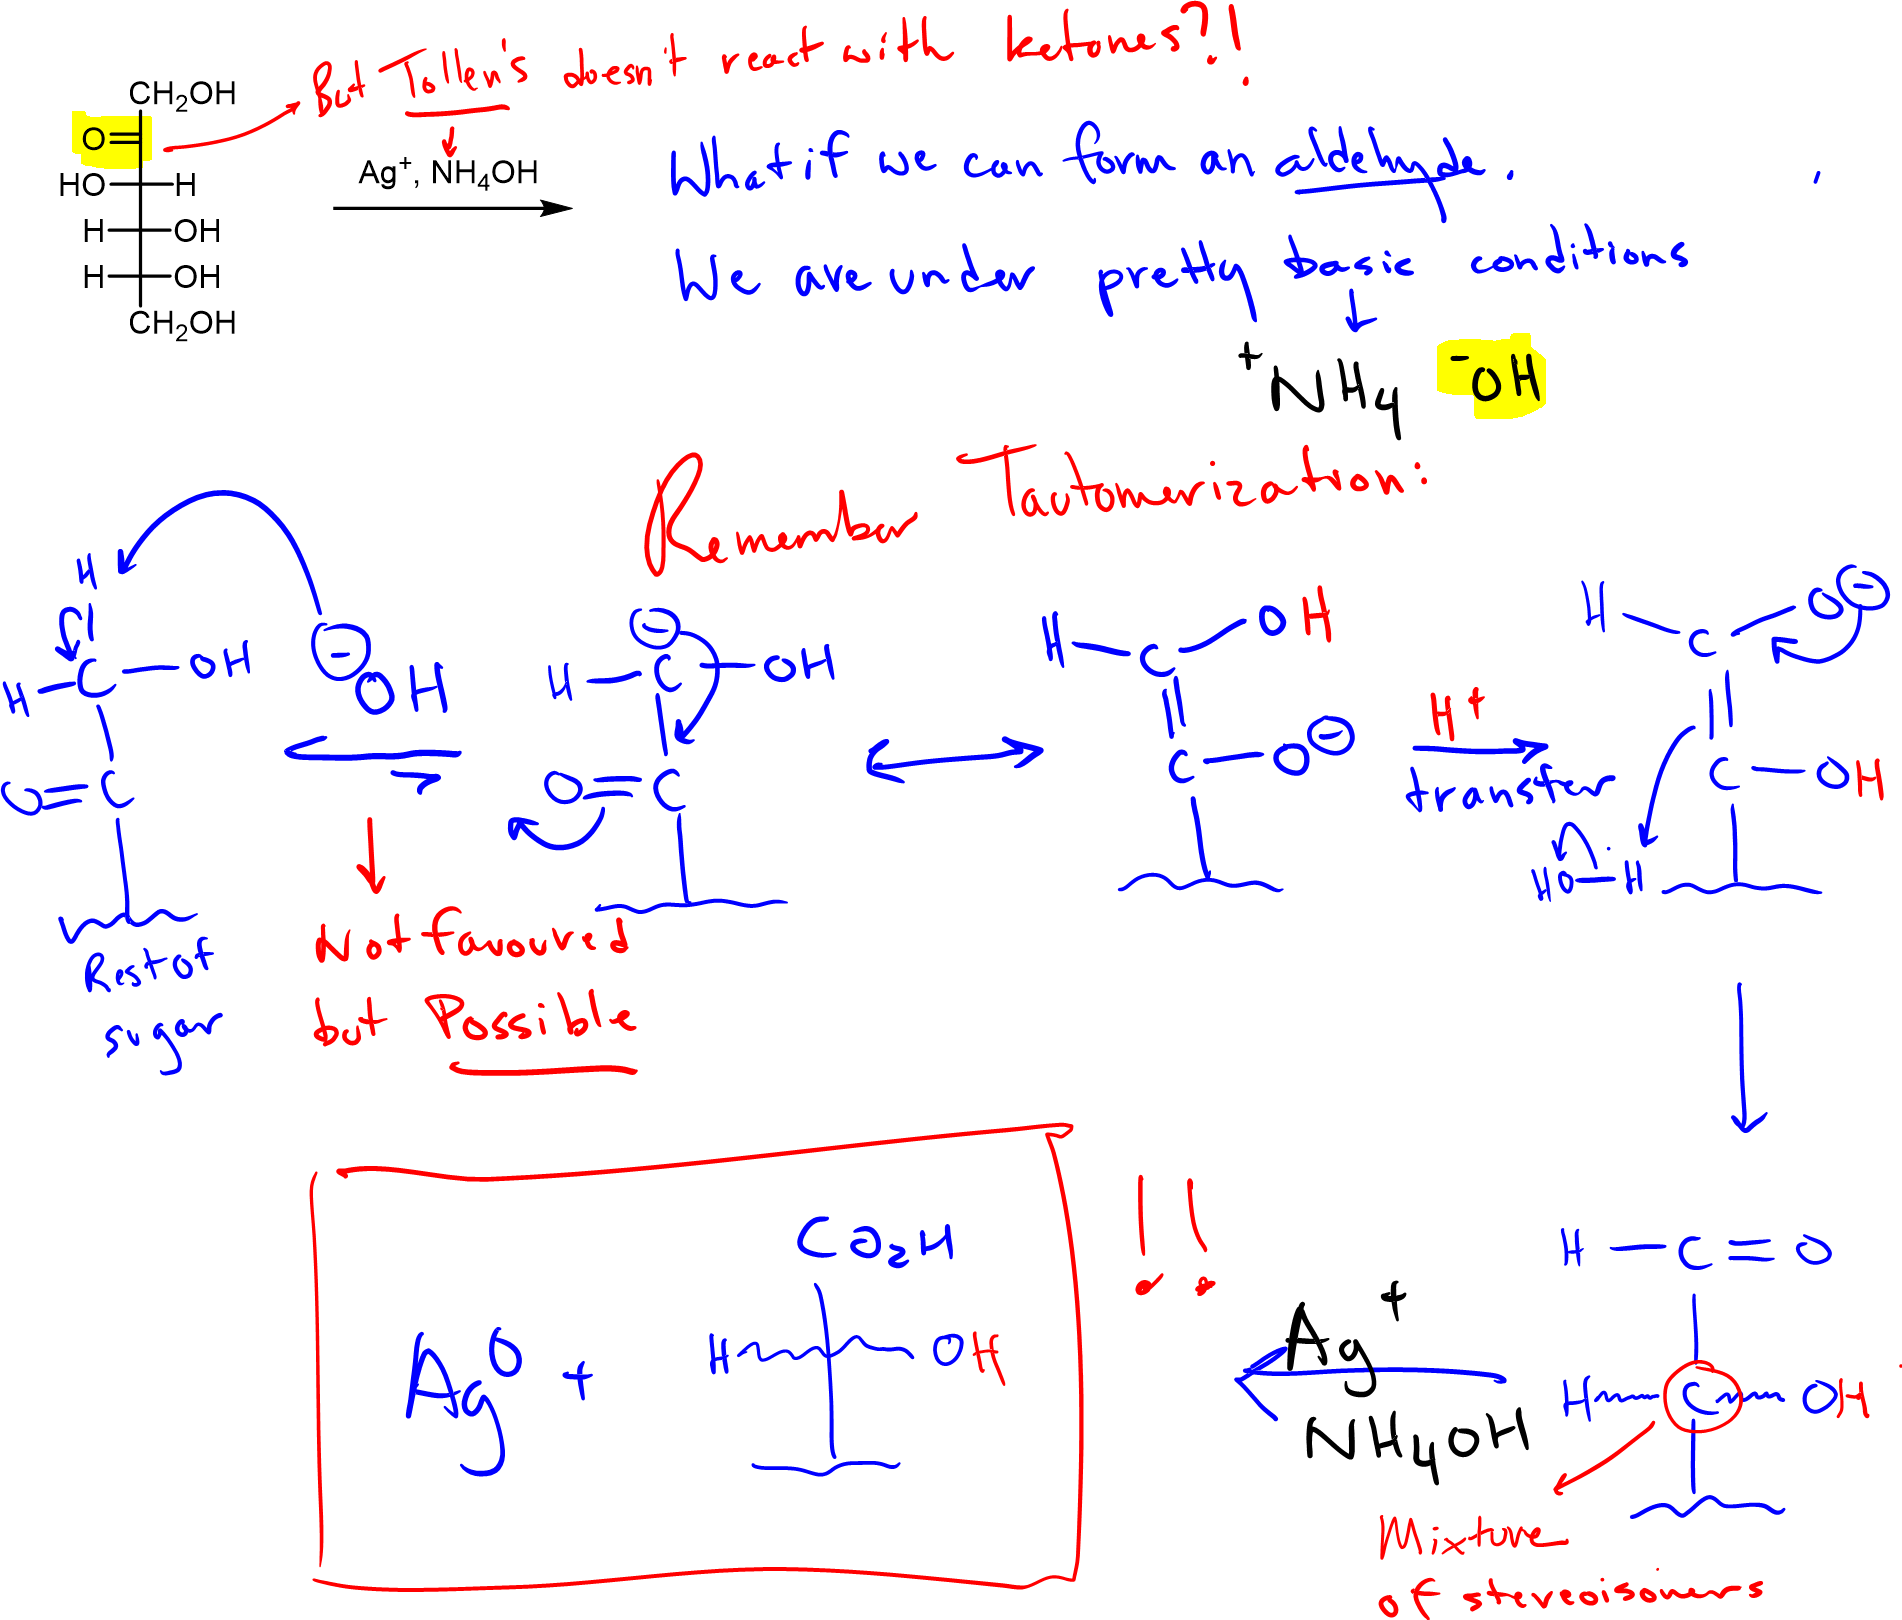 But Tollen's doesn't react with ketones?!
CH₂OH
O
HO H
H OH
H OH
CH₂OH
Ag⁺, NH₄OH
What if we can form an aldehyde.
We are under pretty basic conditions
⁺NH₄ ⁻OH
Remember Tautomerization:
H
H C OH
O=C
⊖OH
Rest of
sugar
Not favoured
but Possible
⊖
H C OH
O=C
H C OH
C O⊖
H⁺
transfer
H C O⊖
C OH
HO-H
H-C=O
H C OH
Mixture
of stereoisomers
Ag⁺
NH₄OH
!!
CO₂H
H OH
Ag⁰ +